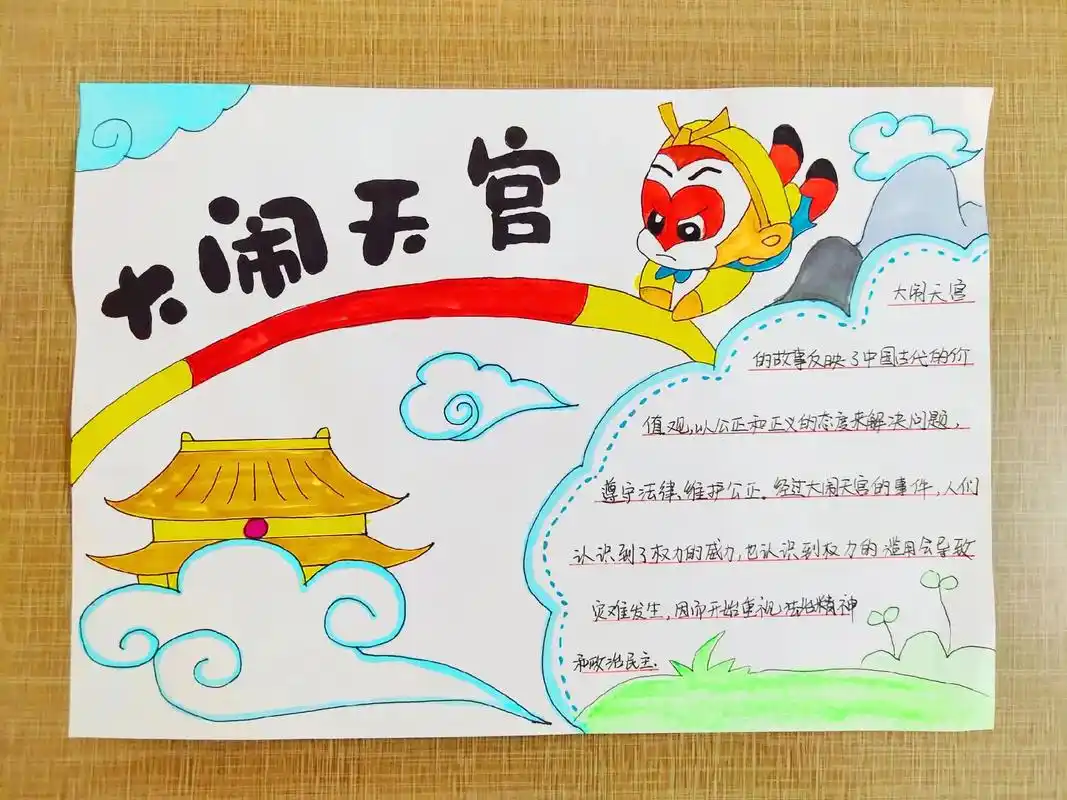 大闹天宫
大闹天宫
的故事反映了中国古代的价
值观,以公正和正义的态度来解决问题,
遵守法律、维护公正。经过大闹天宫的事件,人们
认识到了权力的威力,也认识到权力的滥用会导致
灾难发生,因而开始重视法治精神
和政治民主.